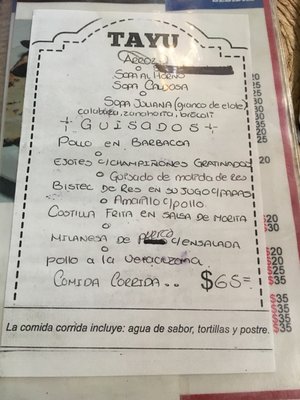 TAYU
ARROZ
o
SOPA AL HORNO
SOPA CALDOSA
o
SOPA JULIANA (grano de elote)
calabaza, zanahoria, brocoli
GUISADOS
POLLO EN BARBACOA
o
EJOTES C/CHAMPIÑONES GRATINADOS
o Guisado de molida de res
BISTEC DE RES EN SU JUGO C/PAPAS
o Amarillo c/pollo
COSTILLA FRITA EN SALSA DE MORITA
o
MILANESA DE PUERCO C/ENSALADA
pollo a la Veracruzana
COMIDA CORRIDA .. $65=
La comida corrida incluye: agua de sabor, tortillas y postre.
20
$20
$30
$20
$20
$25
$35
$35
$35
$35